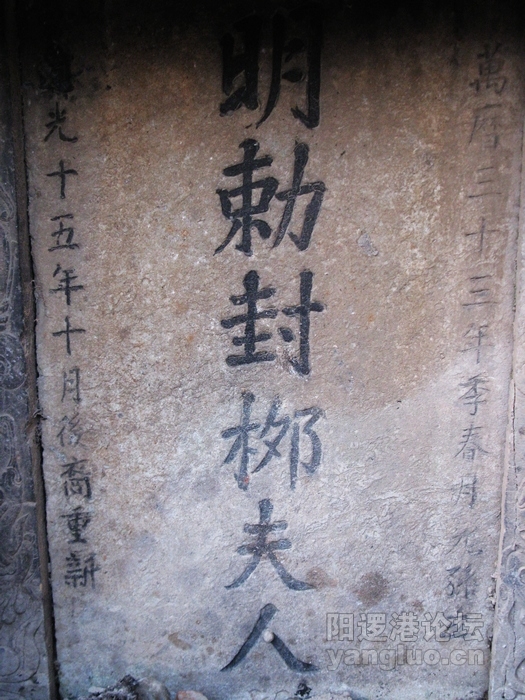 萬厯三十三年季春月元孫
明勅封栁夫人
光十五年十月後裔重新
阳逻港论坛
yangluo.cn